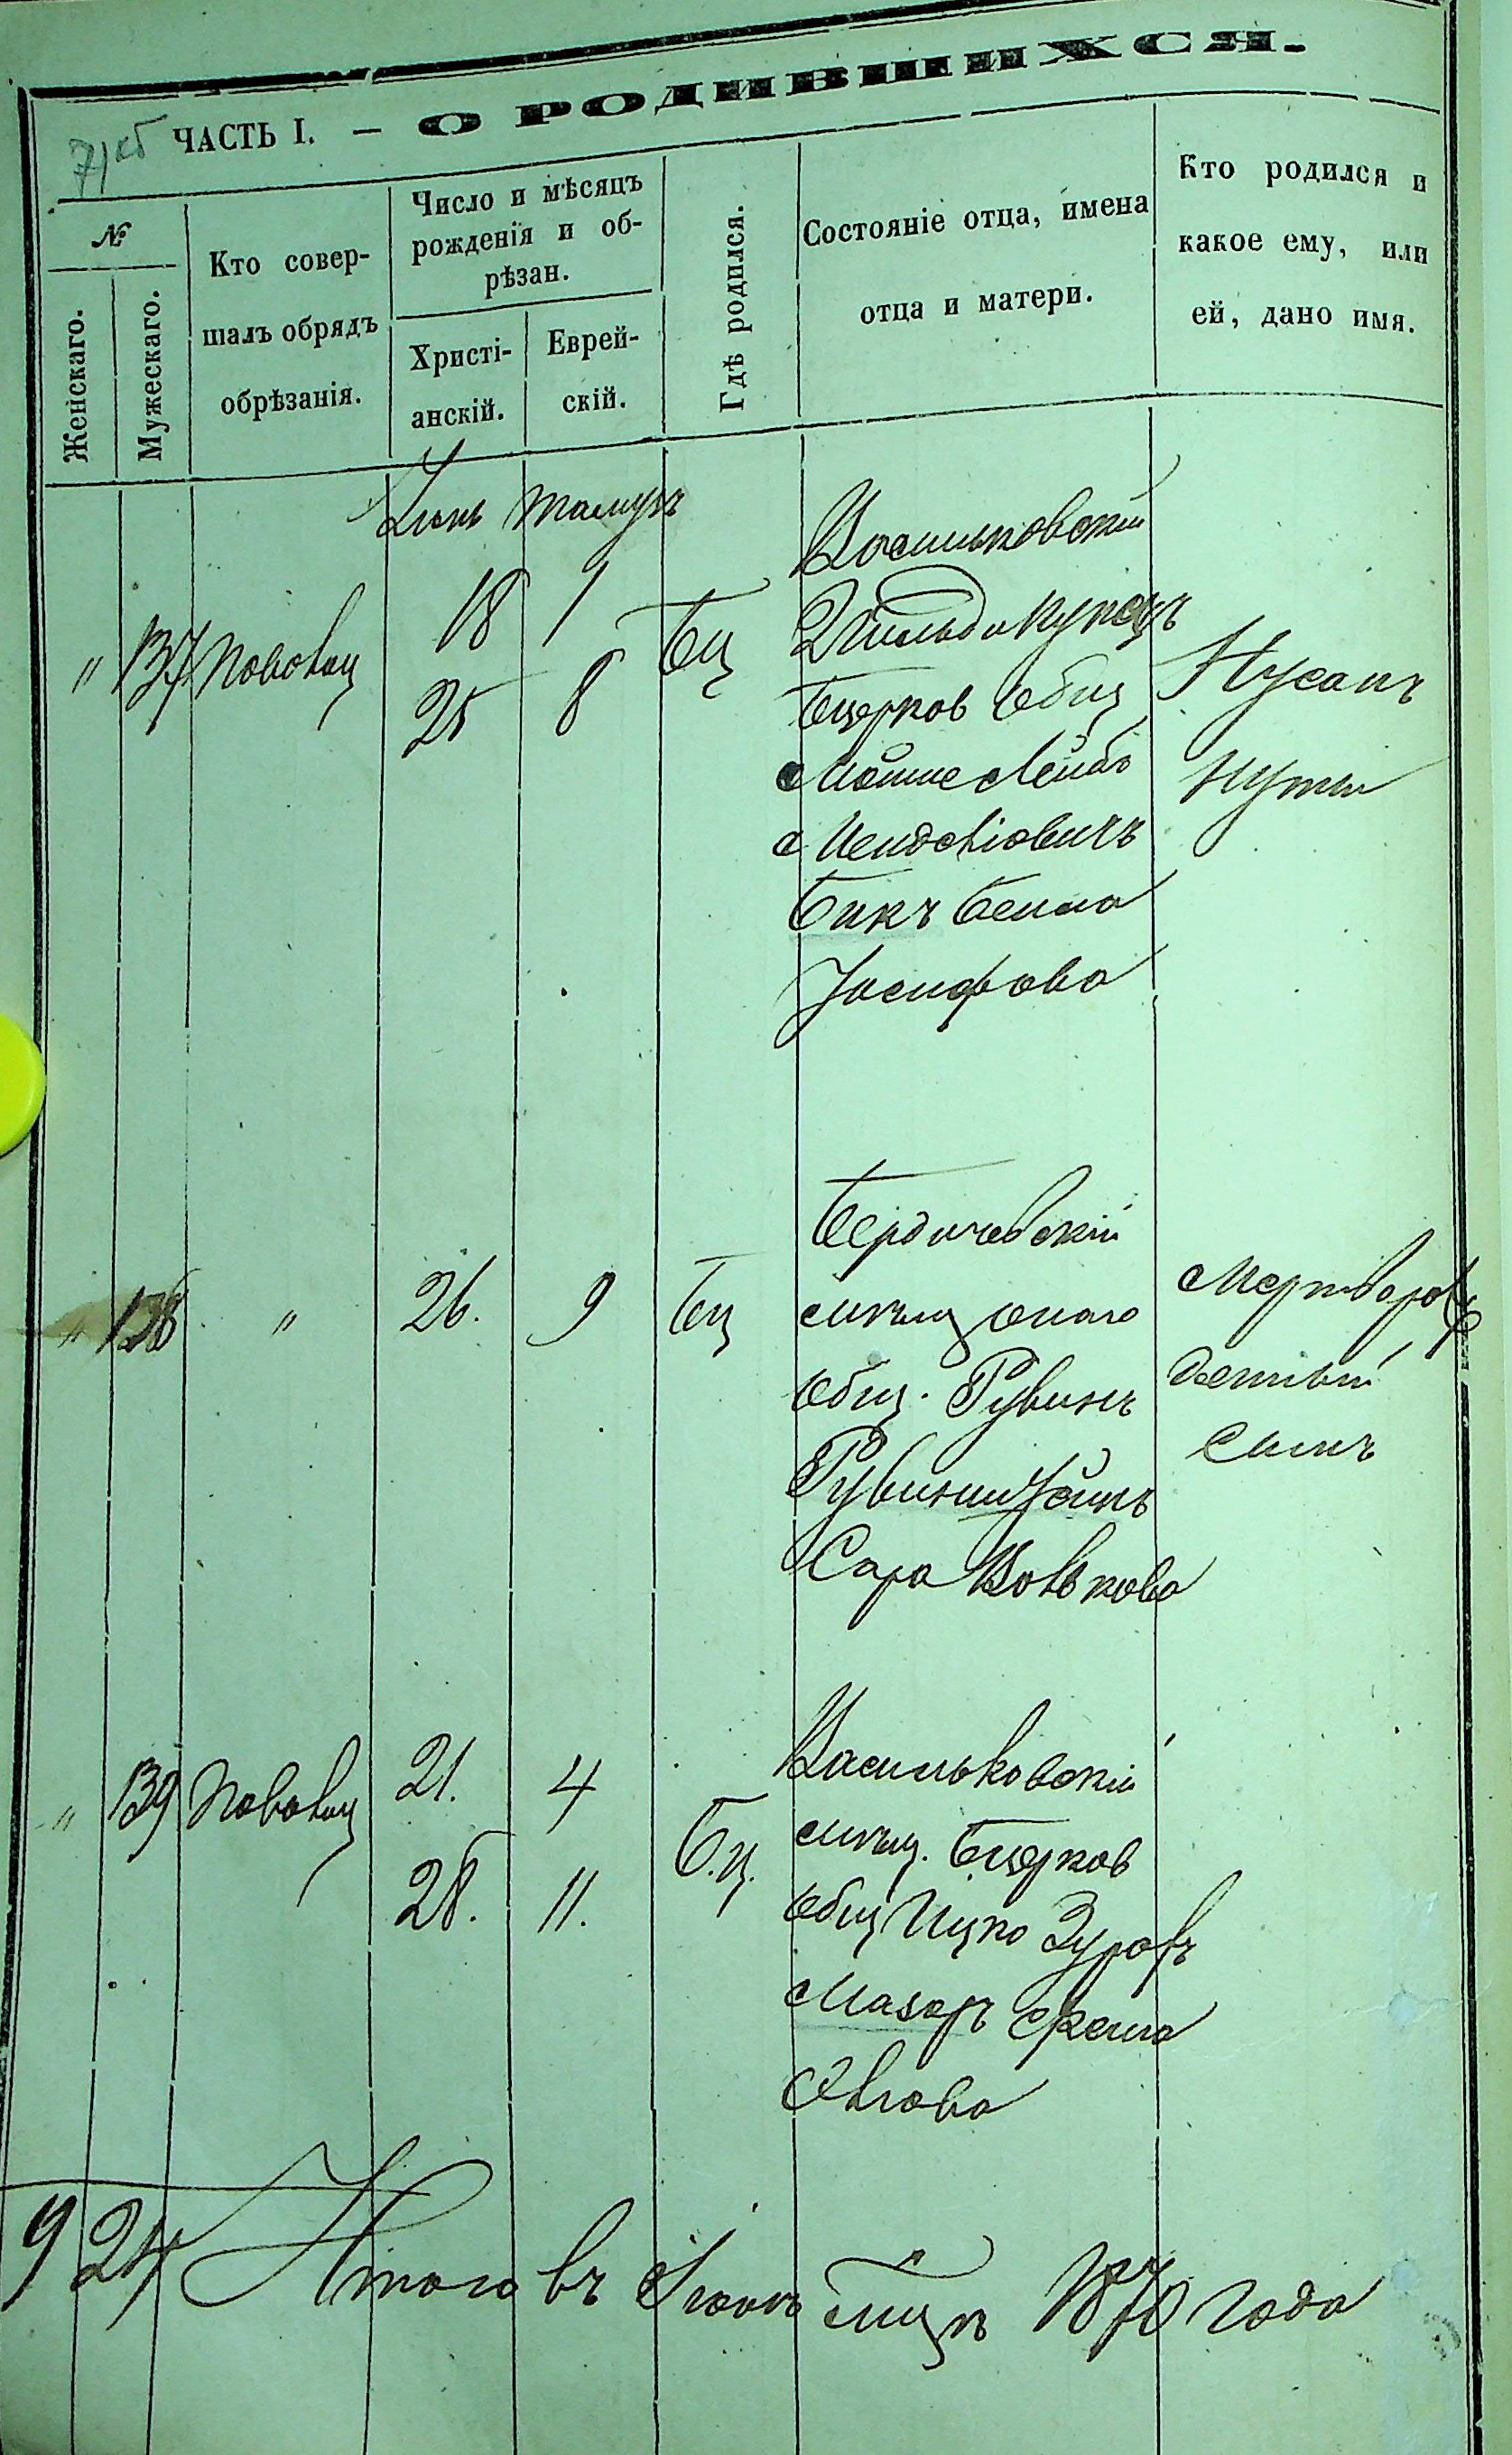 ЧАСТЬ I. — О РОДИВШИХСЯ.
№
Женскаго.
Мужескаго.
Кто совер-
шалъ обрядъ
обрѣзанія.
Число и мѣсяцъ
рожденія и об-
рѣзан.
Христі-
анскій.
Еврей-
скій.
Гдѣ родился.
Состояніе отца, имена
отца и матери.
Кто родился и
какое ему, или
ей, дано имя.
Юнь Тамузъ
" 137
18 1
25 8
Бц
Васильковскій
купецъ
Бцерков Общ
Мошке Лейбъ
Бикъ Бейла
Иосифова
Нусанъ
Нута
" 138 " 26. 9 Бц
Бердичевскій
мѣщ онаго
Общ. Рувинъ
Рувинштейнъ
Сара Вовкова
Мерт­воро
денный
сынъ
" 139
21. 4
28. 11.
Б.ц.
Васильковскій
мѣщ. Бцерков
Общ Ицко
Мазаръ
9 24 Итого въ Іюнѣ мцѣ 1870 года